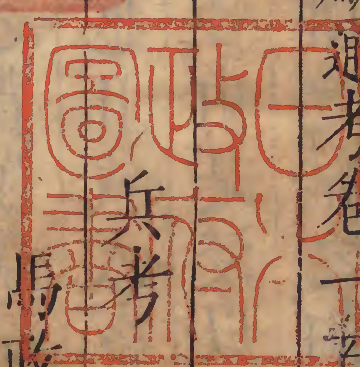 通考卷一
兵考
馬政
日本
政府
圖書